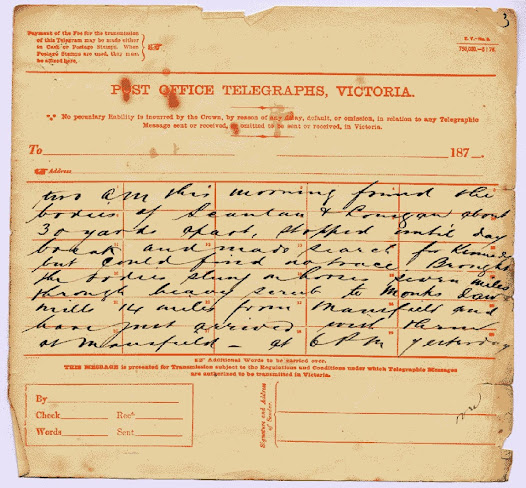 3
Payment of the Fee for the transmission
of this Telegram may be made either
in Cash or Postage Stamps. When
Postage Stamps are used, they must
be affixed here.
E. T.—No. 2.
750,000.—5 | 78.
POST OFFICE TELEGRAPHS, VICTORIA.
No pecuniary liability is incurred by the Crown, by reason of any delay, default, or omission, in relation to any Telegraphic
Message sent or received, or omitted to be sent or received, in Victoria.
To 187 .
Address
two AM this morning found the
bodies of Scanlan & Lonigan about
30 yards apart, stopped until day
break and made search for Kennedy
but could find no trace. Brought
the bodies slung on horses seven miles
through heavy scrub to Monks Saw
mills 14 miles from Mansfield and
have just arrived with them
at Mansfield — at 6 PM yesterday
Additional Words to be carried over.
THIS MESSAGE is presented for Transmission subject to the Regulations and Conditions under which Telegraphic Messages
are authorized to be transmitted in Victoria.
By
Check Rec
Words Sent
Signature and Address
of Sender.